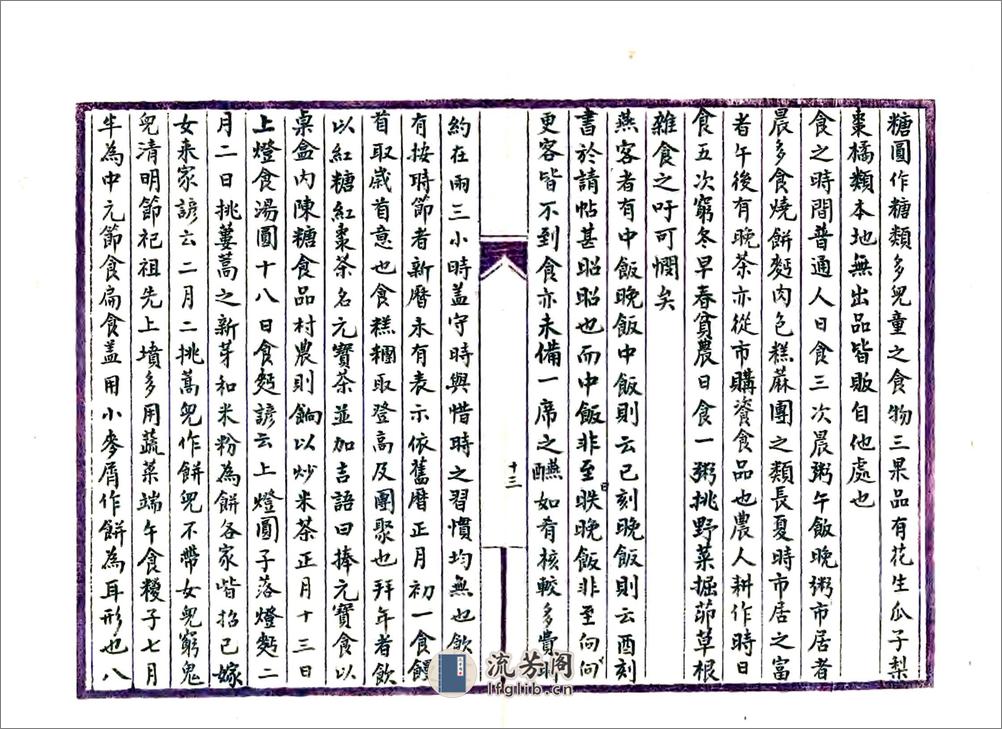 糖圓作糖類多兒童之食物三果品有花生瓜子梨
棗橘類本地無出品皆販自他處也
食之時間普通人日食三次晨粥午飯晚粥市居者
晨多食燒餅麫肉包糕蔴團之類長夏時市居之富
者午後有晚茶亦從市購餈食品也農人耕作時日
食五次窮冬早春貧農日食一粥挑野菜掘茆草根
雜食之吁可憫矣
燕客者有中飯晚飯中飯則云巳刻晚飯則云酉刻
書於請帖甚昭昭也而中飯非至日昳晚飯非至向
更客皆不到食亦未備一席之醼如肴核較多費時
十三
約在兩三小時盖守時與惜時之習慣均無也飲食
有按時節者新曆未有表示依舊曆正月初一食饅
首取歲首意也食糕糰取登高及團聚也拜年者飲
以紅糖紅棗茶名元寶茶並加吉語曰捧元寶食以
桌盒內陳糖食品村農則餉以炒米茶正月十三日
上燈食湯圓十八日食麫諺云上燈圓子落燈麫二
月二日挑蔞蒿之新芽和米粉為餅各家皆招已嫁
女來家諺云二月二挑蒿兒作餅兒不帶女兒窮鬼
兒清明節祀祖先上墳多用蔬菜端午食糉子七月
半為中元節食扁食盖用小麥屑作餅為耳形也八
流芳閣
lfglib.cn